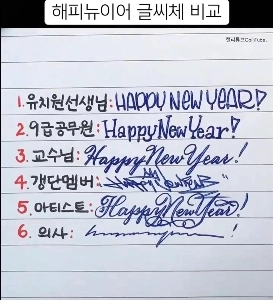 해피뉴이어 글씨체 비교
1. 유치원선생님: HAPPY NEW YEAR!
2. 9급공무원: Happy New Year!
3. 교수님: Happy New Year!
4. 갱단멤버:
5. 아티스트: Happy New Year!
6. 의사: